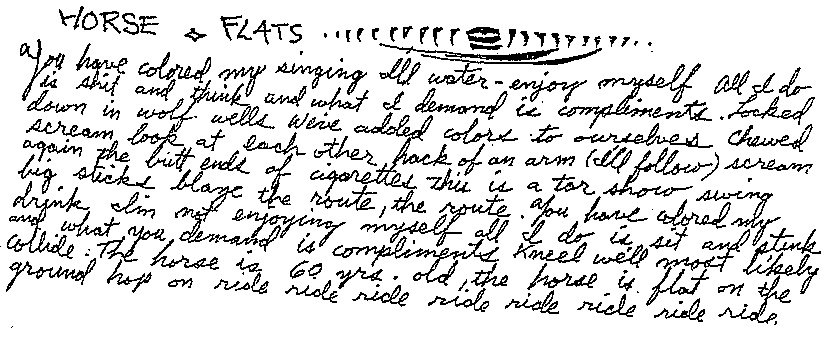 HORSE & FLATS
You have colored my singing I'll water - enjoy myself All I do
is shit and think and what I demand is compliments. Locked
down in wolf wells We've added colors to ourselves Chewed
scream look at each other, hack of an arm (I'll follow) scream
again the butt ends of cigarettes This is a tar show swing
big sticks blaze the route, the route. You have colored my
drink I'm not enjoying myself all I do is sit and stink
and what you demand is compliments kneel we'll most likely
collide: The horse is 60 yrs. old, the horse is flat on the
ground hop on ride ride ride ride ride ride ride ride.